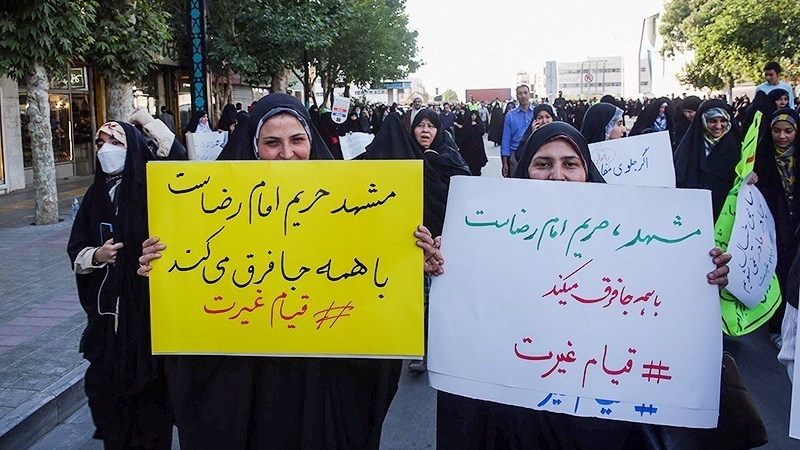 مشهد حریم امام رضاست
با همه جا فرق می‌کند
# قیام غیرت
مشهد، حریم امام رضاست
با همه جا فرق میکند
# قیام غیرت
اگر جلوی